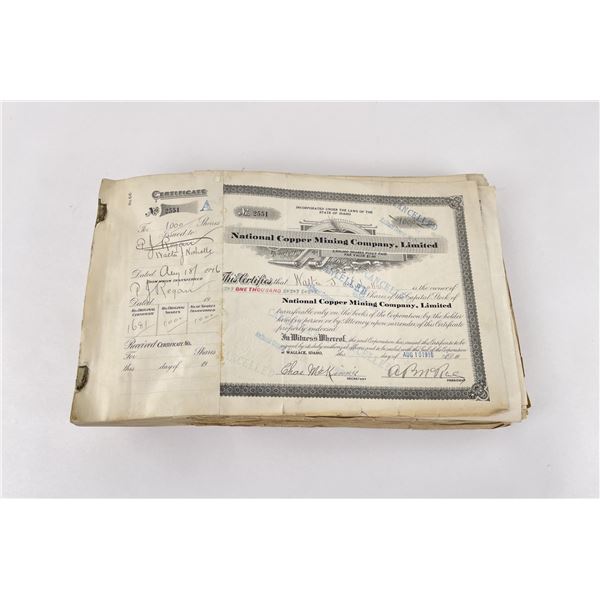 CERTIFICATE
No 2551 A
For 1000 Shares
Issued to
P J Regan
Walter J Nicholls
Dated Aug 18/ 1916
FROM WHOM TRANSFERRED
P J Regan
Dated 19
NO. ORIGINAL CERTIFICATE
NO. ORIGINAL SHARES
NO. OF SHARES TRANSFERRED
1691 1000 1000
Received Certificate No.
For Shares
this day of 19
INCORPORATED UNDER THE LAWS OF THE
STATE OF IDAHO
No. 2551
CANCELLED
National Copper Mining Company, Limited
PAR VALUE
CANCELLED
CANCELLED
This Certifies that is the owner
of ONE THOUSAND Shares of the Capital Stock of
National Copper Mining Company, Limited
transferable only on the books of the Corporation by the holder
hereof in person or by Attorney upon surrender of this Certificate
properly endorsed.
In Witness Whereof, the said Corporation has caused this Certificate to be
signed by its duly authorized officers and to be sealed with the Seal of the Corporation
at WALLACE, IDAHO, this day of AUG 18 1916
CANCELLED
Chas McKinnis
SECRETARY
PRESIDENT